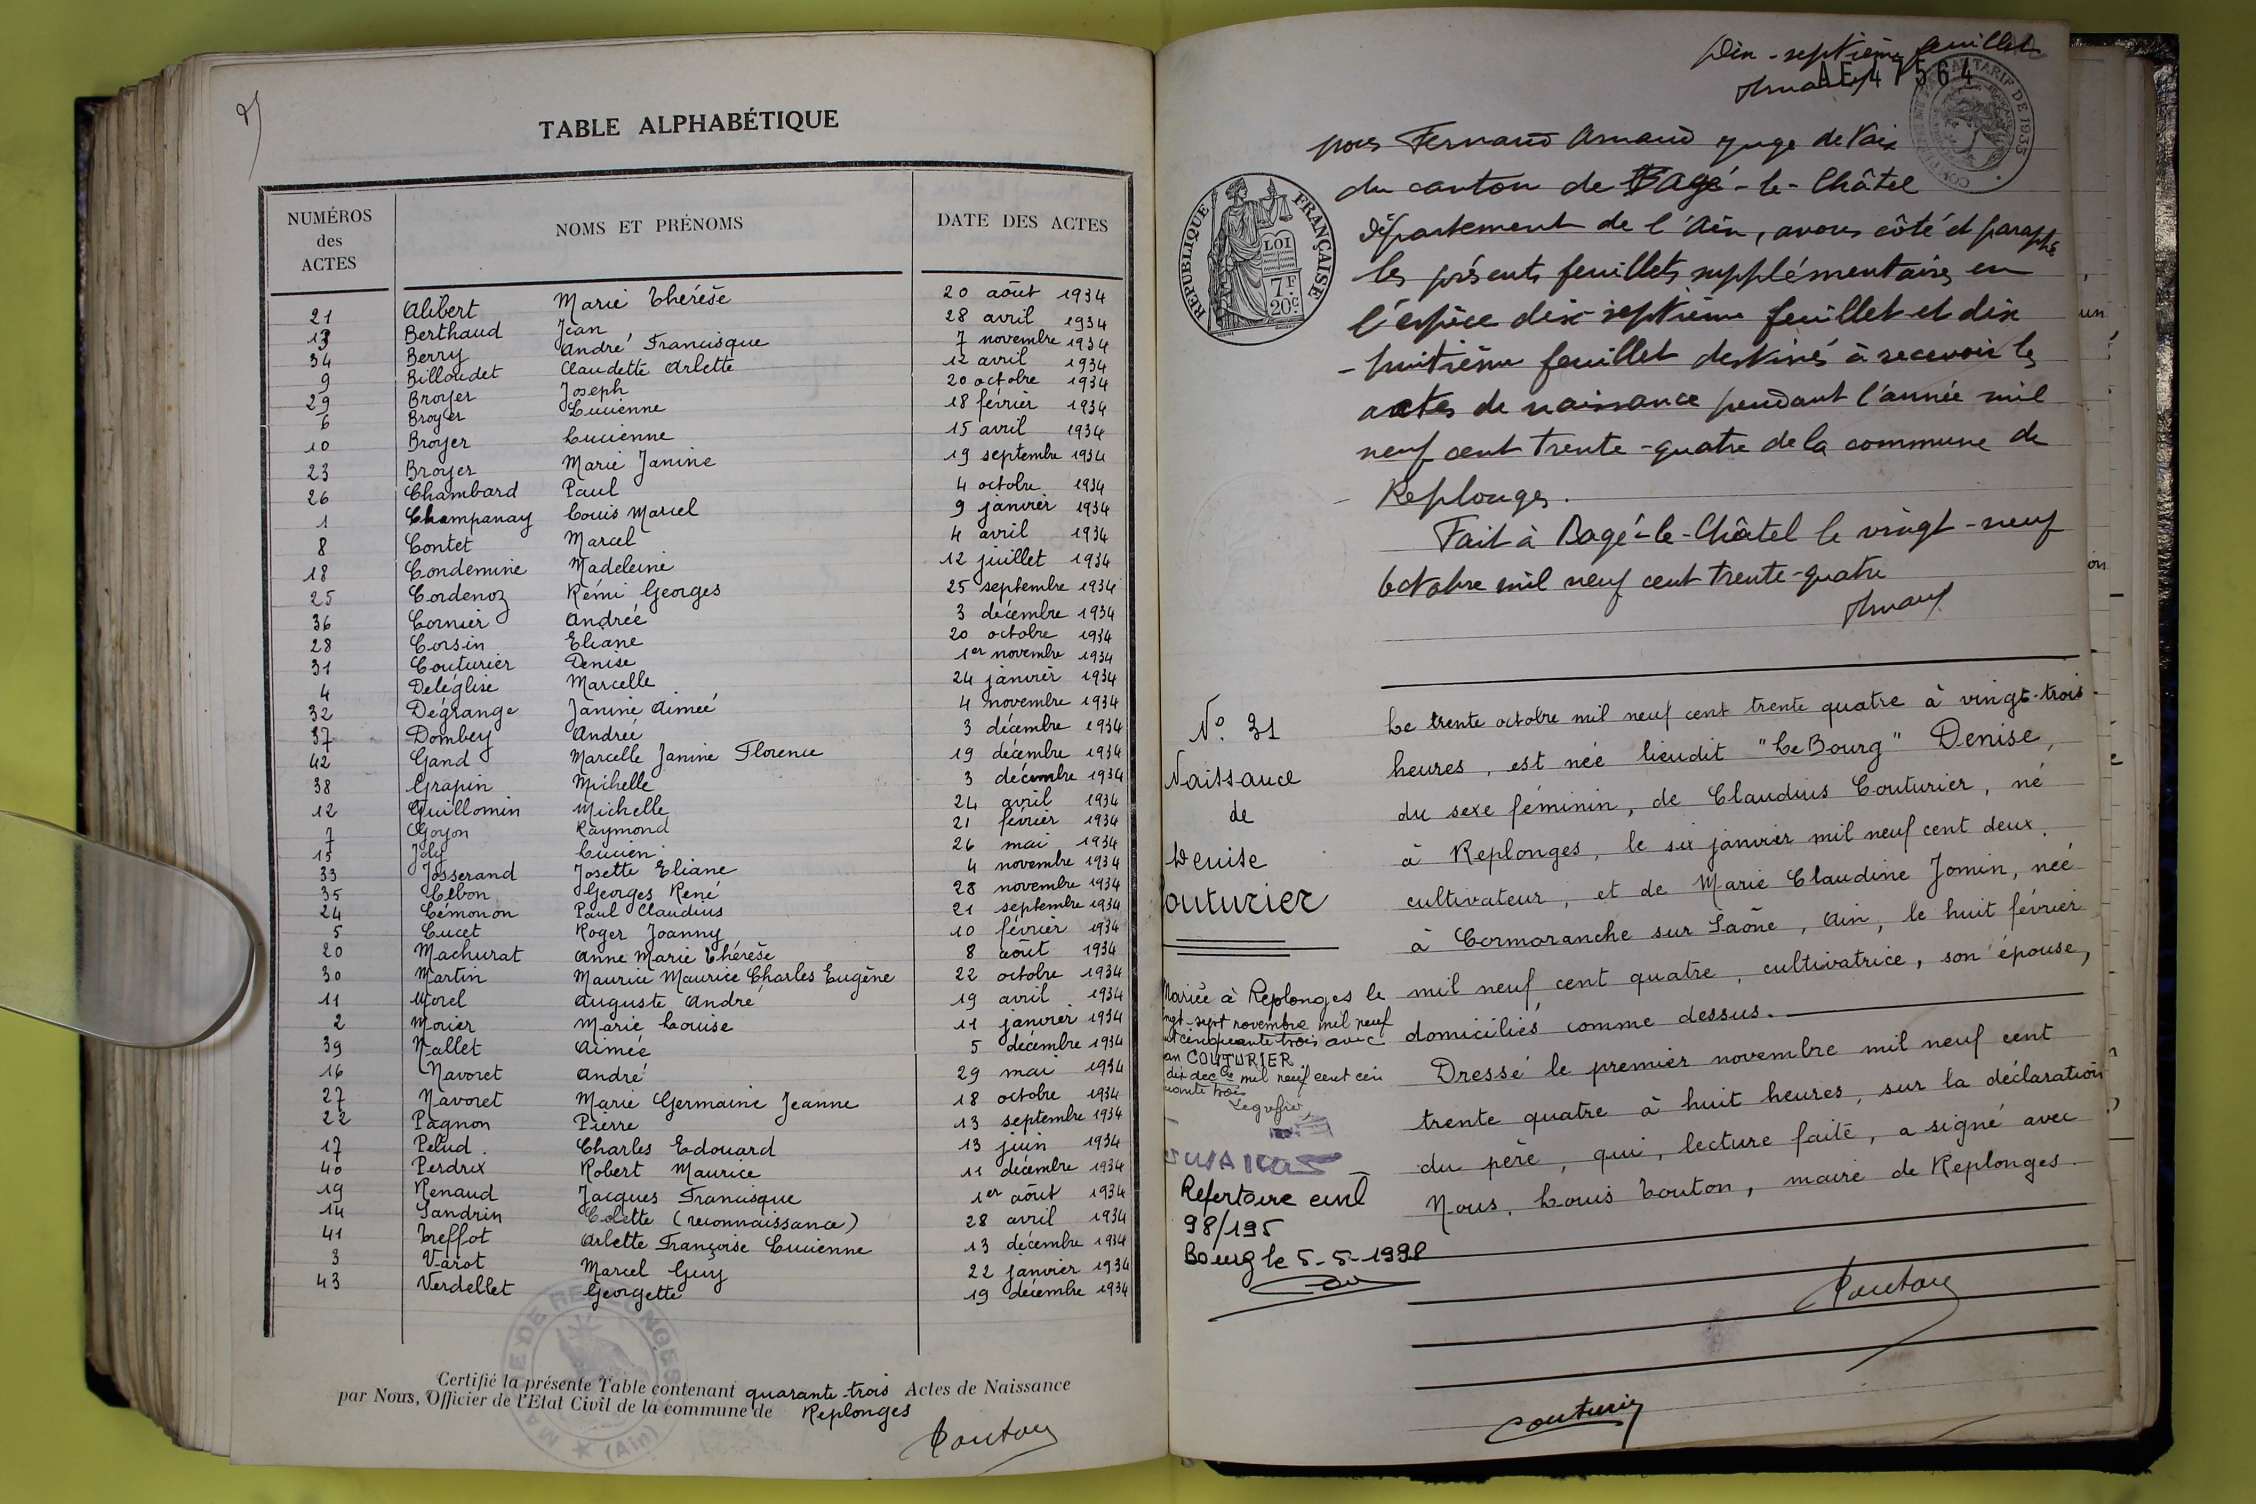 TABLE ALPHABÉTIQUE
NUMÉROS des ACTES NOMS ET PRÉNOMS DATE DES ACTES
21 Alibert Marie Thérèse 20 août 1934
13 Berthaud Jean 28 avril 1934
34 Berry André Francisque 7 novembre 1934
9 Billoudet Claudette Arlette 12 avril 1934
29 Broyer Joseph 20 octobre 1934
6 Broyer Lucienne 18 février 1934
10 Broyer Lucienne 15 avril 1934
23 Broyer Marie Janine 19 septembre 1934
26 Chambard Paul 4 octobre 1934
1 Champanay Louis Marcel 9 janvier 1934
8 Contet Marcel 4 avril 1934
18 Condemine Madeleine 12 juillet 1934
25 Cordenoz Rémi Georges 25 septembre 1934
36 Cornier Andrée 3 décembre 1934
28 Corsin Eliane 20 octobre 1934
31 Couturier Denise 1er novembre 1934
4 Deléglise Marcelle 24 janvier 1934
32 Dégrange Janine Aimée 4 novembre 1934
37 Dombey Andrée 3 décembre 1934
42 Gand Marcelle Janine Florence 19 décembre 1934
38 Grapin Michelle 3 décembre 1934
12 Guillomin Michelle 24 avril 1934
7 Goyon Raymond 21 février 1934
15 Joly Lucien 26 mai 1934
33 Josserand Josette Eliane 4 novembre 1934
35 Lebon Georges René 28 novembre 1934
24 Lémonon Paul Claudius 21 septembre 1934
5 Lucet Roger Joanny 10 février 1934
20 Machurat Anne Marie Thérèse 8 août 1934
30 Martin Maurice Maurice Charles Eugène 22 octobre 1934
11 Morel Auguste André 19 avril 1934
2 Morier Marie Louise 11 janvier 1934
39 Nallet Aimée 5 décembre 1934
16 Navoret André 29 mai 1934
27 Navoret Marie Germaine Jeanne 18 octobre 1934
22 Pagnon Pierre 13 septembre 1934
17 Pelud Charles Edouard 13 juin 1934
40 Perdrix Robert Maurice 11 décembre 1934
19 Renaud Jacques Francisque 1er août 1934
14 Sandrin Colette (reconnaissance) 28 avril 1934
41 Treffot Arlette Françoise Lucienne 13 décembre 1934
3 Varot Marcel Guy 22 janvier 1934
43 Verdellet Georgette 19 décembre 1934
Certifié la présente Table contenant quarante-trois Actes de Naissance
par Nous, Officier de l'Etat Civil de la commune de Replonges
MAIRIE DE REPLONGES (Ain)
Touton
Dix-septième feuillet
AE 47564
Arnaud
TARIF DE 1935
RÉPUBLIQUE FRANÇAISE
LOI
7F
20c
nous Fernand Arnaud juge de Paix
du canton de Bagé-le-Châtel
département de l'Ain, avons côté et paraphé
les présents feuillets supplémentaires en
l'espèce dix-septième feuillet et dix
-huitième feuillet destinés à recevoir les
actes de naissance pendant l'année mil
neuf cent trente-quatre de la commune de
Replonges.
Fait à Bagé-le-Châtel le vingt-neuf
octobre mil neuf cent trente-quatre
Arnaud
No. 31
Naissance
de
Denise
Couturier
Le trente octobre mil neuf cent trente quatre à vingt-trois
heures, est née lieudit "Le Bourg" Denise,
du sexe féminin, de Claudius Couturier, né
à Replonges, le six janvier mil neuf cent deux,
cultivateur, et de Marie Claudine Jomin, née
à Cormoranche sur Saône, Ain, le huit février
mil neuf cent quatre, cultivatrice, son épouse,
domiciliés comme dessus.
Dressé le premier novembre mil neuf cent
trente quatre à huit heures, sur la déclaration
du père, qui, lecture faite, a signé avec
Nous, Louis Touton, maire de Replonges.
Mariée à Replonges le
vingt-sept novembre mil neuf
cent cinquante trois avec
COUTURIER
dix dec mil neuf cent cin
quante trois
Le greffier
Répertoire civil
98/195
Bourg le 5-5-1998
Touton
Couturier